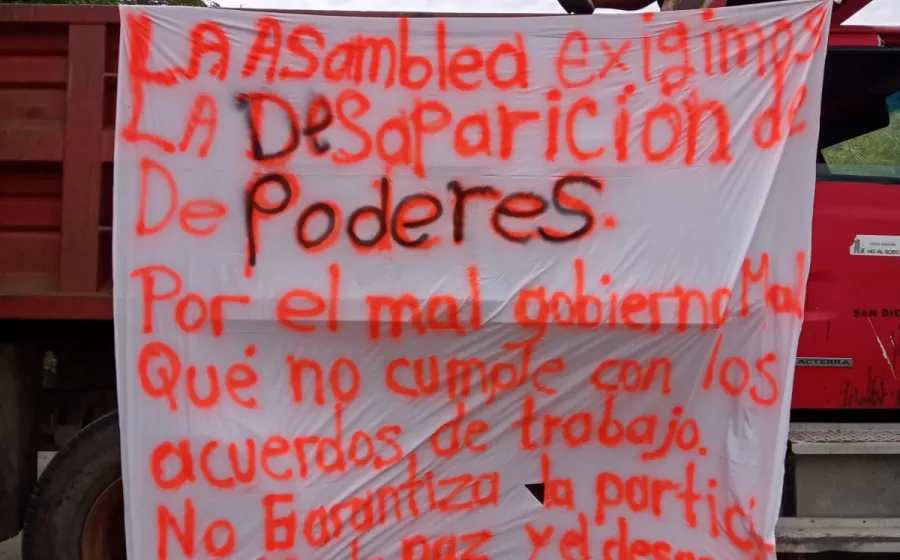 LA Asamblea exigimos
LA DeSaparición de
De Poderes.
Por el mal gobierno Mal
Qué no cumple con los
acuerdos de trabajo.
No Garantiza la partici
paz y el
NO AL ROBO
SAN DIO
ACTERRA